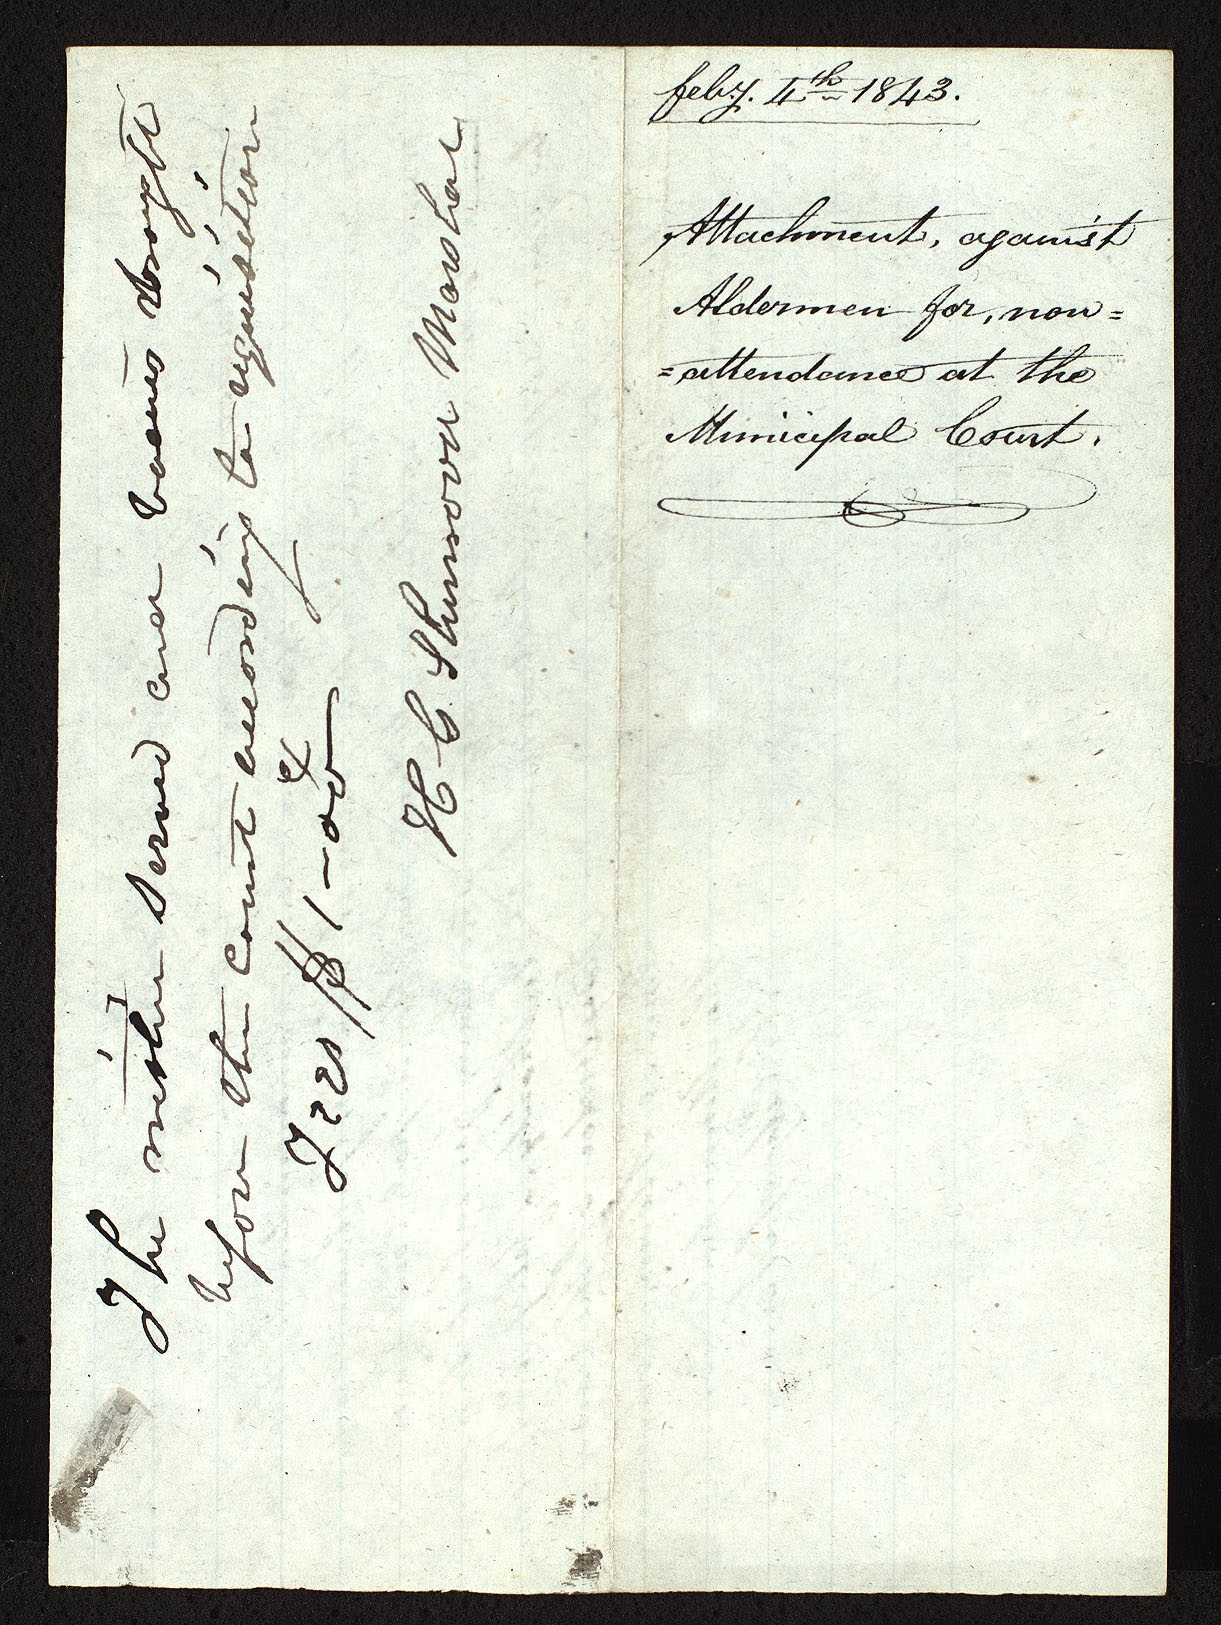 feby. 4th 1843.
Attachment, against
Aldermen for, non=
=attendance at the
Municipal Court.
The within served and bodies brought
before the court according to requisition
Fees $1-00
H C Sherwood Marshal